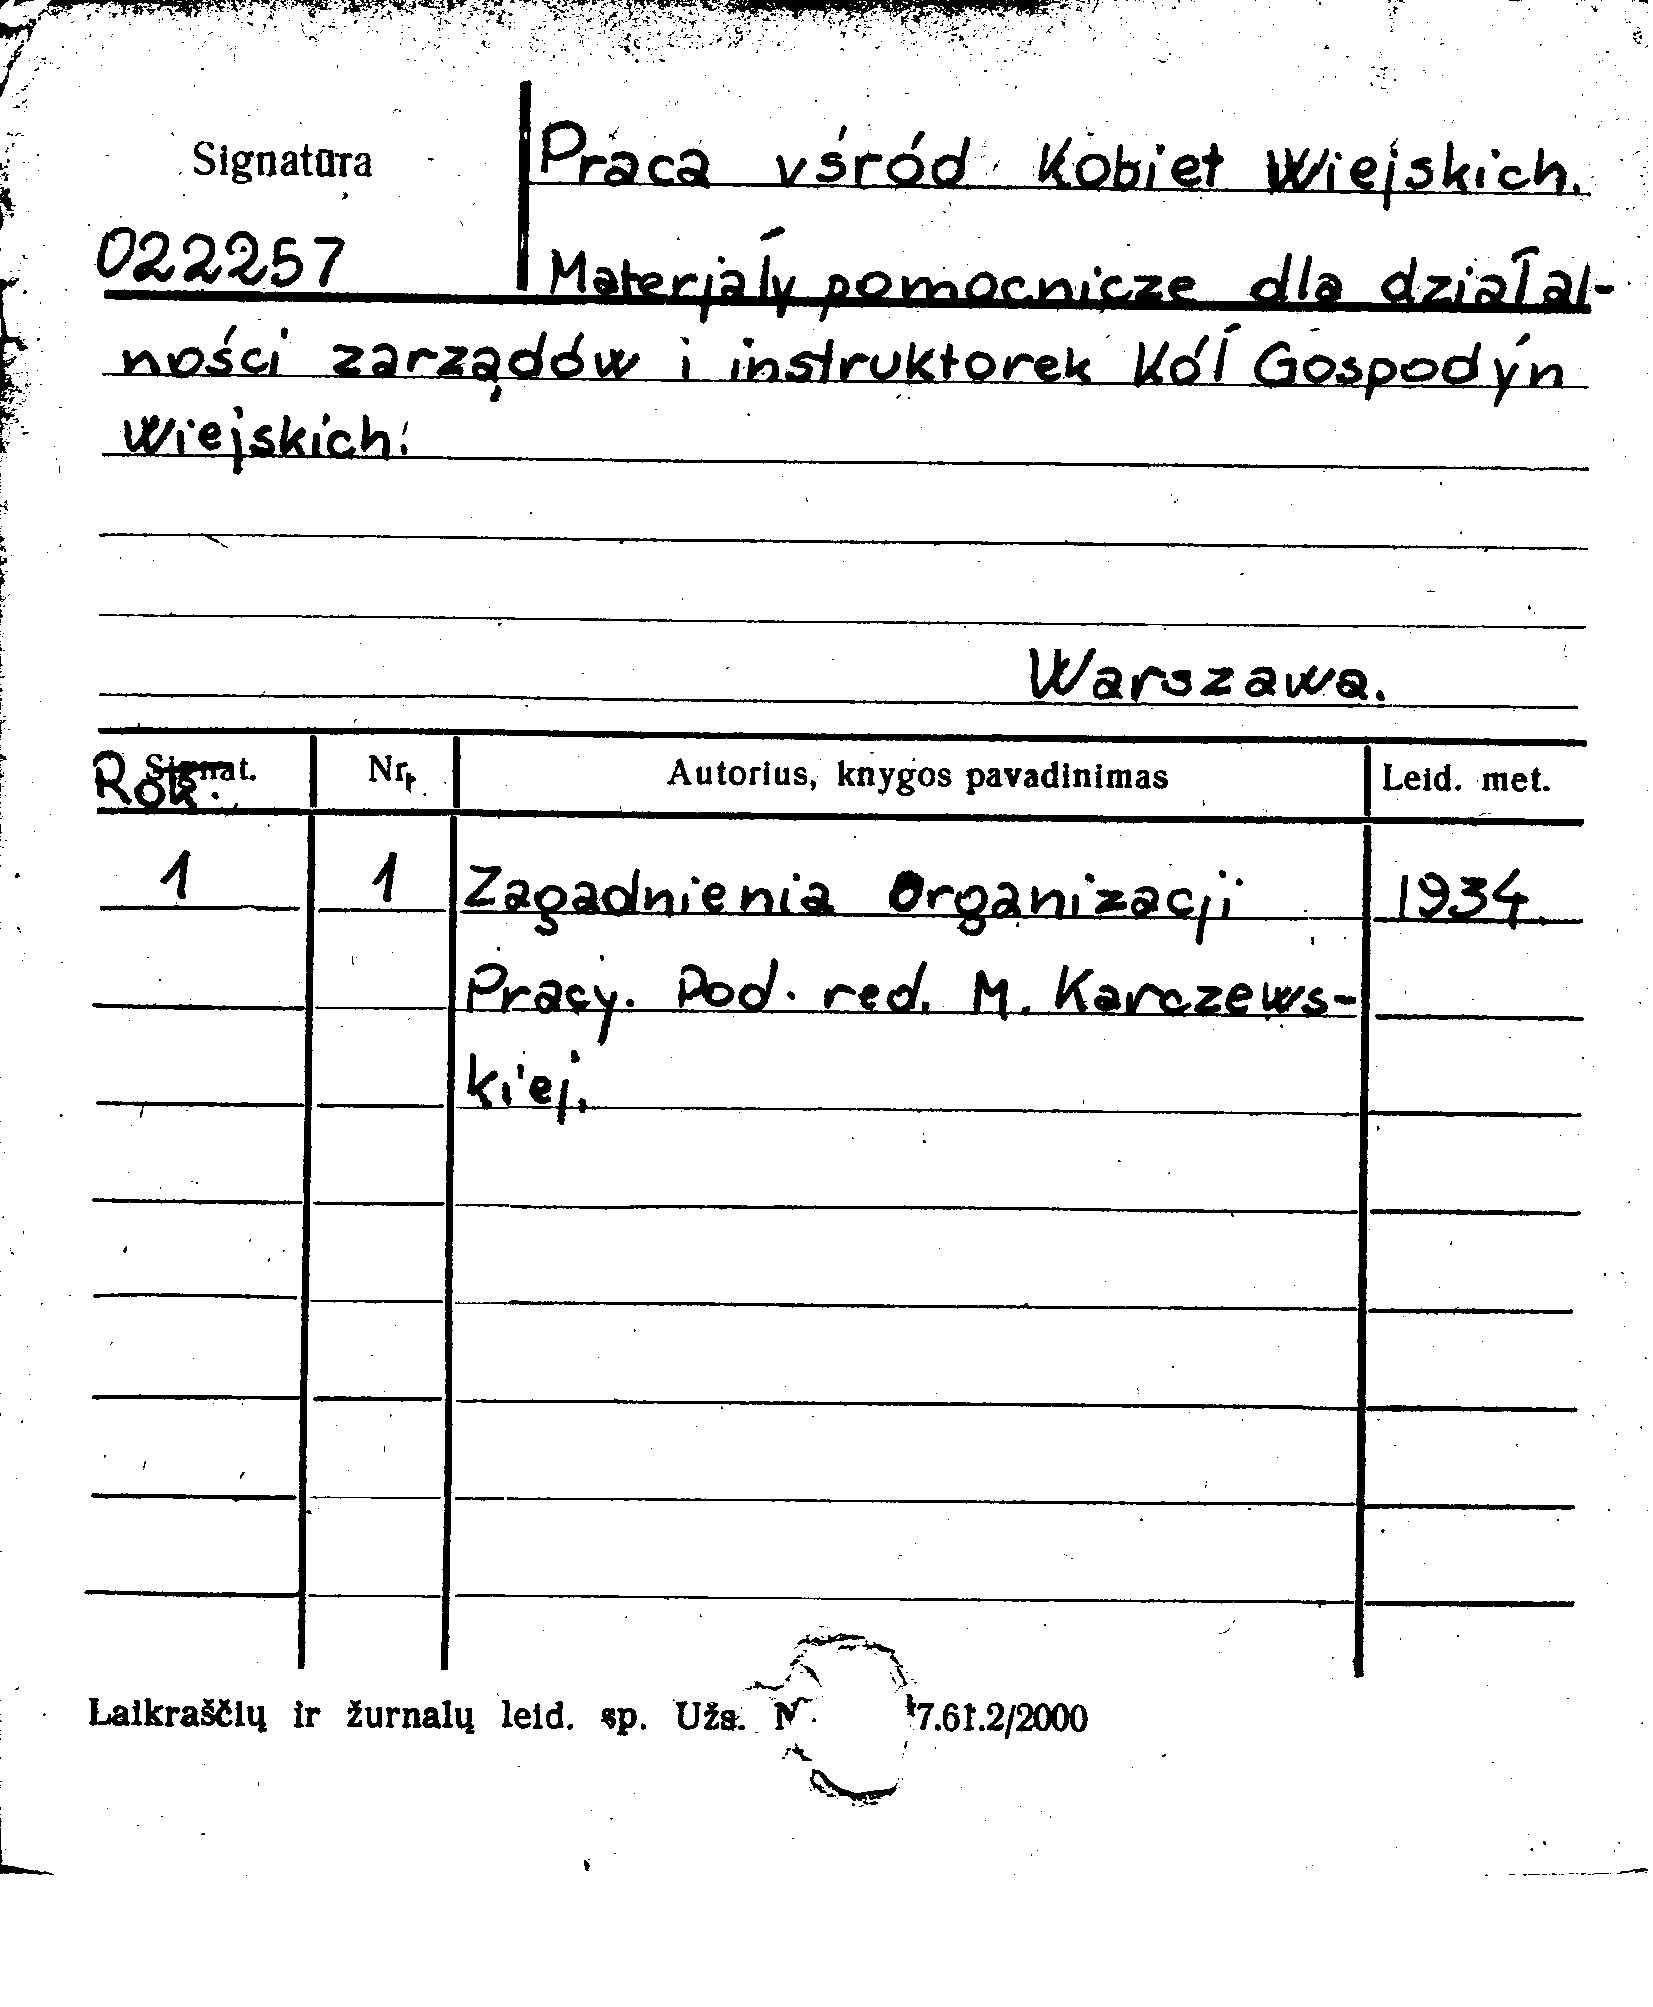 Signatūra
Praca vśród Kobiet Wiejskich.
022257
Materjały pomocnicze dla działal-
ności zarządów i instruktorek Kół Gospodyń
Wiejskich.
Warszawa.
Rok. Signat. Nr. Autorius, knygos pavadinimas Leid. met.
1 1 Zagadnienia Organizacji 1934.
Pracy. Pod. red. M. Karczews-
kiej.
Laikraščių ir žurnalų leid. sp. Užs. N 7.61.2/2000